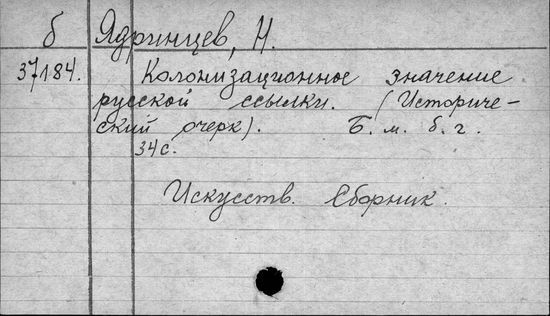 б Ядринцев, Н.
37184. Колонизационное значение
русской ссылки. (Историче-
ский очерк). Б. м. б. г.
34с.
Искусств. Сборник.